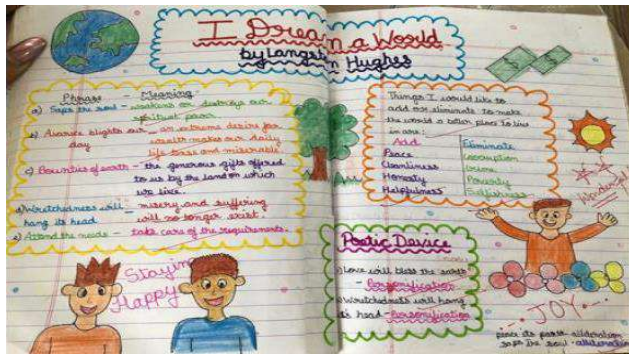 I Dream a World
by Langston Hughes
Phrase - Meaning
a) Saps the soul - weakens or destroys our
spiritual power
b) Avarice blights our - an extreme desire for
day wealth makes our daily
life tense and miserable
c) Bounties of earth - the generous gifts offered
to us by the land on which
we live.
d) Wretchedness will - misery and suffering
hang its head. will no longer exist.
e) Attend the needs - take care of the requirements.
Staying
Happy
Things I would like to
add or eliminate to make
the world a better place to live
in are:
Add Eliminate
Peace Corruption
Cleanliness Crime
Honesty Poverty
Helpfulness
Wonderful
Poetic Device
Love will bless the earth
- Personification
Wretchedness will hang
its head - Personification
JOY
peace its path - alliteration
saps the soul - alliteration